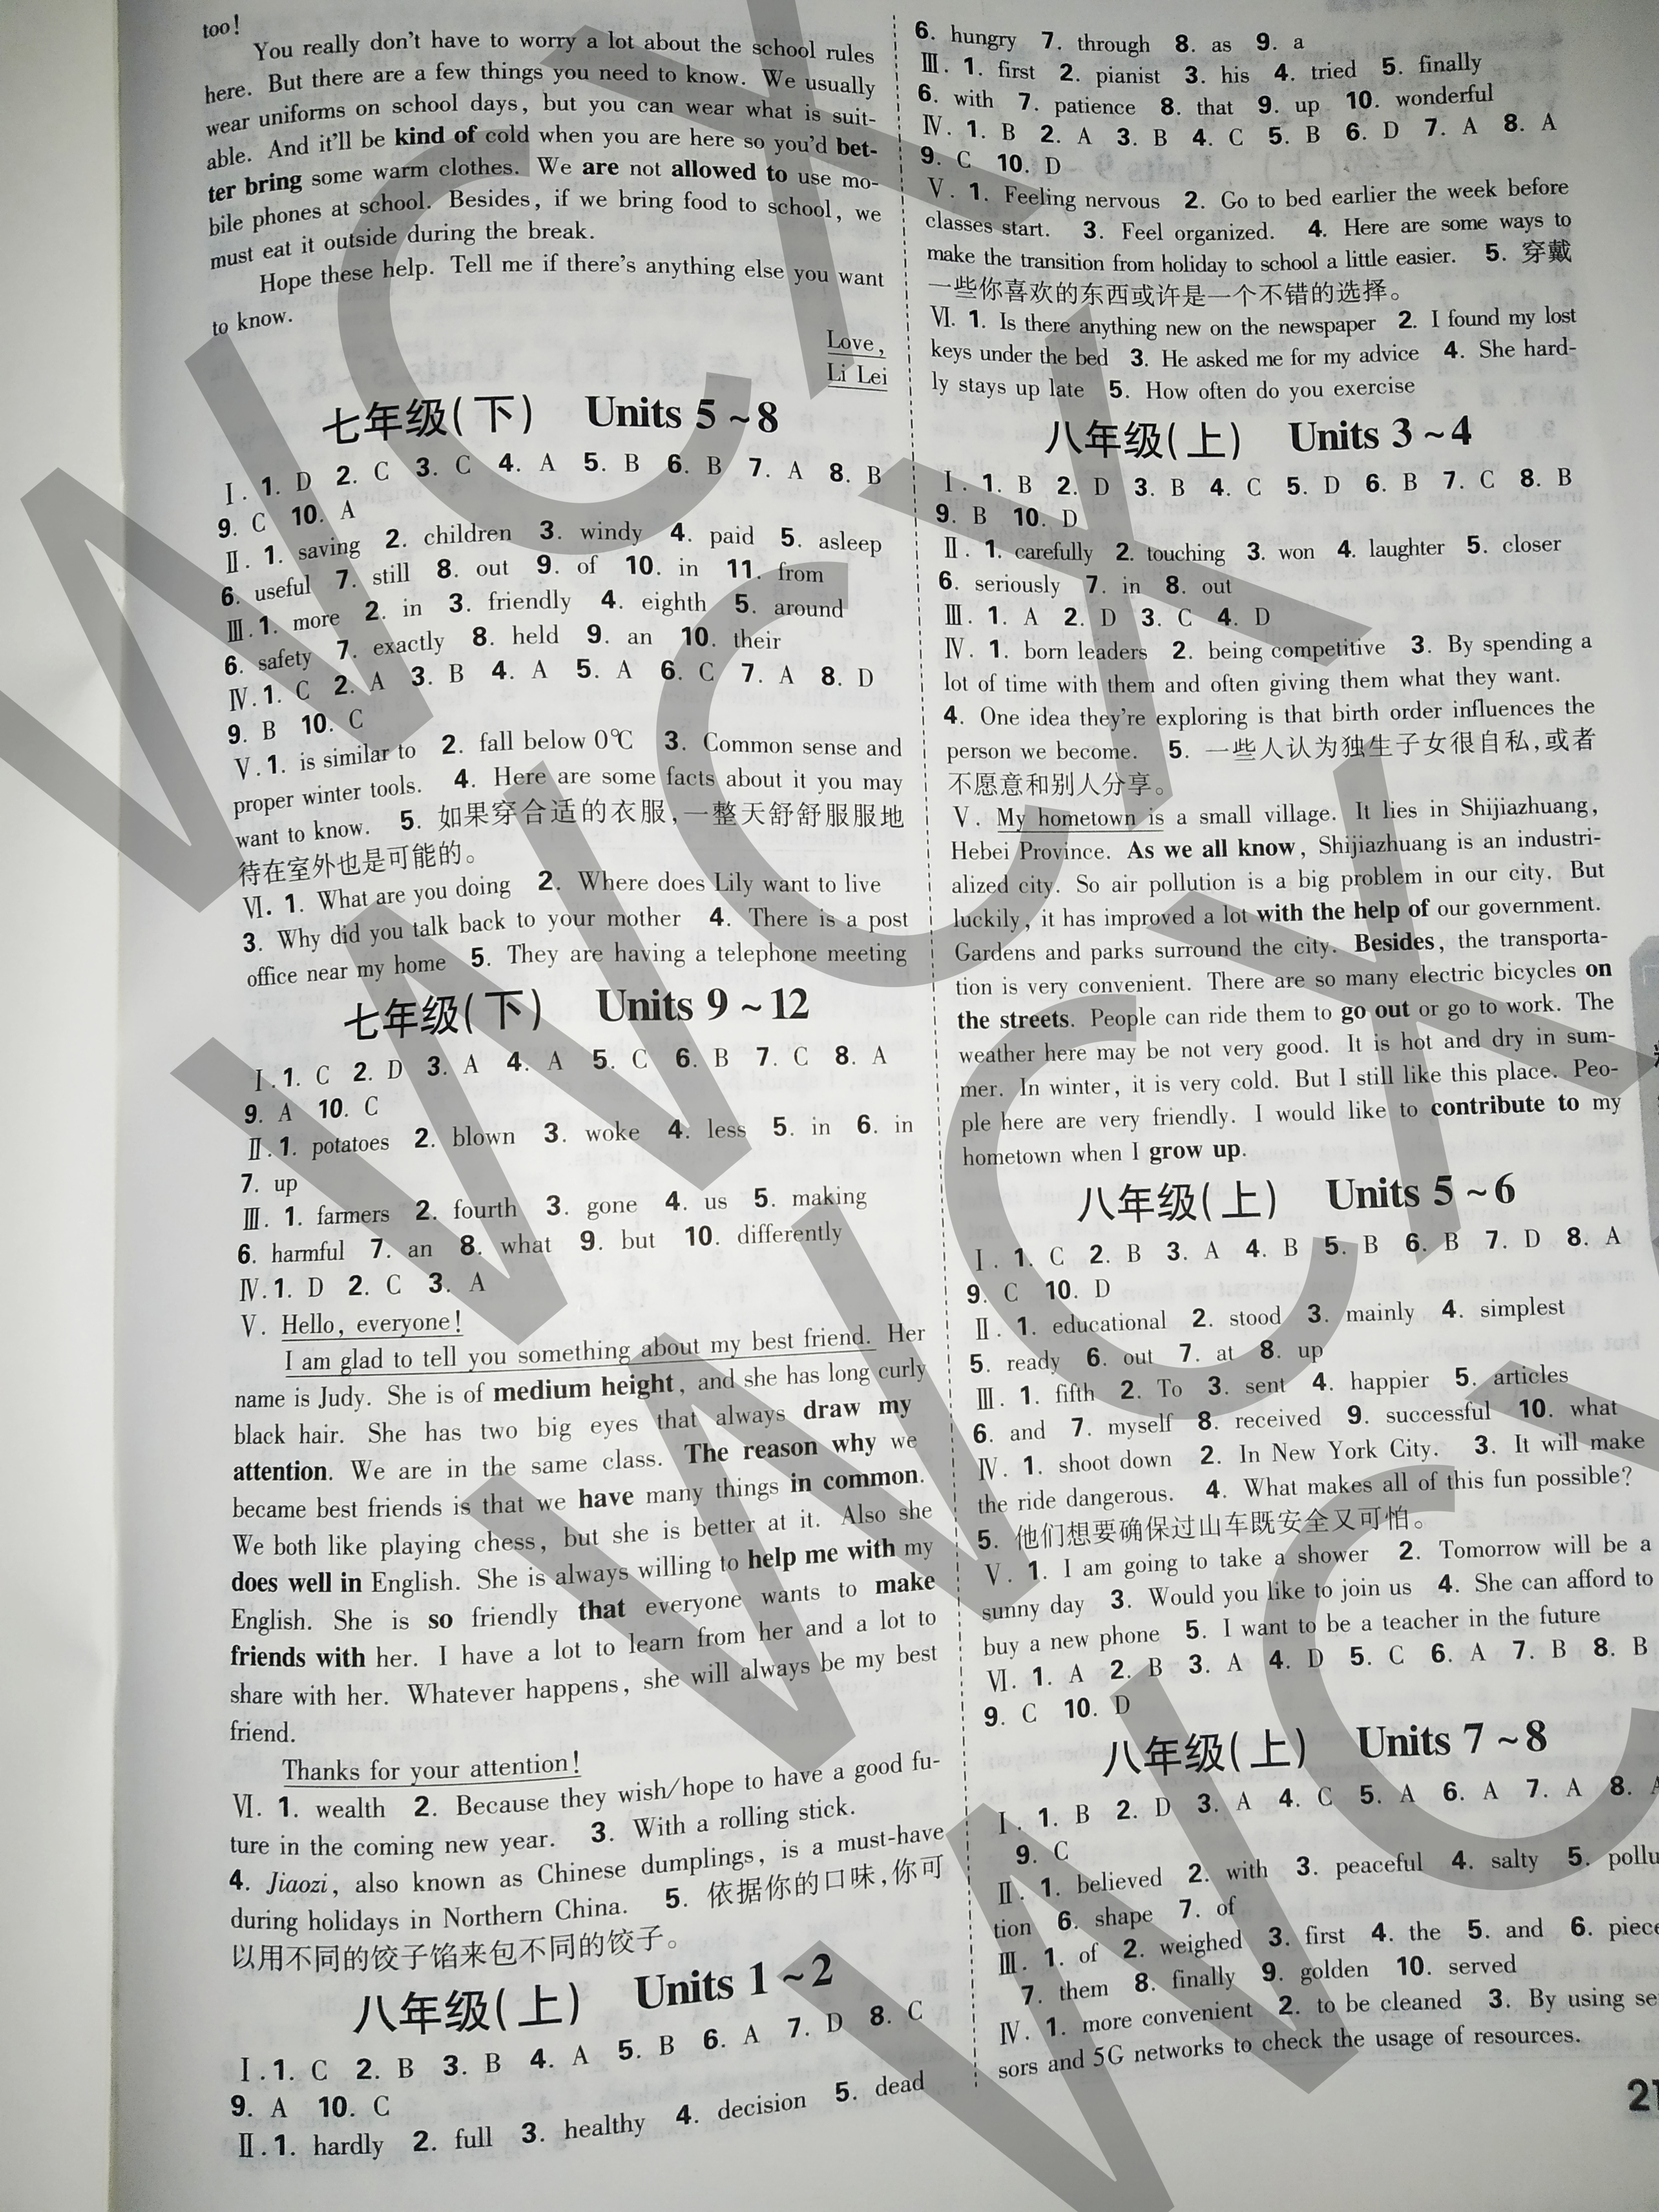 too!
You really don't have to worry a lot about the school rules
here. But there are a few things you need to know. We usually
wear uniforms on school days, but you can wear what is suit-
able. And it'll be kind of cold when you are here so you'd bet-
ter bring some warm clothes. We are not allowed to use mo-
bile phones at school. Besides, if we bring food to school, we
must eat it outside during the break.
Hope these help. Tell me if there's anything else you want
to know.
Love,
Li Lei
七年级(下) Units 5~8
Ⅰ. 1. D 2. C 3. C 4. A 5. B 6. B 7. A 8. B
9. C 10. A
Ⅱ. 1. saving 2. children 3. windy 4. paid 5. asleep
6. useful 7. still 8. out 9. of 10. in 11. from
Ⅲ. 1. more 2. in 3. friendly 4. eighth 5. around
6. safety 7. exactly 8. held 9. an 10. their
Ⅳ. 1. C 2. A 3. B 4. A 5. A 6. C 7. A 8. D
9. B 10. C
Ⅴ. 1. is similar to 2. fall below 0℃ 3. Common sense and
proper winter tools. 4. Here are some facts about it you may
want to know. 5. 如果穿合适的衣服,一整天舒舒服服地
待在室外也是可能的。
Ⅵ. 1. What are you doing 2. Where does Lily want to live
3. Why did you talk back to your mother 4. There is a post
office near my home 5. They are having a telephone meeting
七年级(下) Units 9~12
Ⅰ. 1. C 2. D 3. A 4. A 5. C 6. B 7. C 8. A
9. A 10. C
Ⅱ. 1. potatoes 2. blown 3. woke 4. less 5. in 6. in
7. up
Ⅲ. 1. farmers 2. fourth 3. gone 4. us 5. making
6. harmful 7. an 8. what 9. but 10. differently
Ⅳ. 1. D 2. C 3. A
Ⅴ. Hello, everyone!
I am glad to tell you something about my best friend. Her
name is Judy. She is of medium height, and she has long curly
black hair. She has two big eyes that always draw my
attention. We are in the same class. The reason why we
became best friends is that we have many things in common.
We both like playing chess, but she is better at it. Also she
does well in English. She is always willing to help me with my
English. She is so friendly that everyone wants to make
friends with her. I have a lot to learn from her and a lot to
share with her. Whatever happens, she will always be my best
friend.
Thanks for your attention!
Ⅵ. 1. wealth 2. Because they wish/hope to have a good fu-
ture in the coming new year. 3. With a rolling stick.
4. Jiaozi, also known as Chinese dumplings, is a must-have
during holidays in Northern China. 5. 依据你的口味,你可
以用不同的饺子馅来包不同的饺子。
八年级(上) Units 1~2
Ⅰ. 1. C 2. B 3. B 4. A 5. B 6. A 7. D 8. C
9. A 10. C
Ⅱ. 1. hardly 2. full 3. healthy 4. decision 5. dead
6. hungry 7. through 8. as 9. a
Ⅲ. 1. first 2. pianist 3. his 4. tried 5. finally
6. with 7. patience 8. that 9. up 10. wonderful
Ⅳ. 1. B 2. A 3. B 4. C 5. B 6. D 7. A 8. A
9. C 10. D
Ⅴ. 1. Feeling nervous 2. Go to bed earlier the week before
classes start. 3. Feel organized. 4. Here are some ways to
make the transition from holiday to school a little easier. 5. 穿戴
一些你喜欢的东西或许是一个不错的选择。
Ⅵ. 1. Is there anything new on the newspaper 2. I found my lost
keys under the bed 3. He asked me for my advice 4. She hard-
ly stays up late 5. How often do you exercise
八年级(上) Units 3~4
Ⅰ. 1. B 2. D 3. B 4. C 5. D 6. B 7. C 8. B
9. B 10. D
Ⅱ. 1. carefully 2. touching 3. won 4. laughter 5. closer
6. seriously 7. in 8. out
Ⅲ. 1. A 2. D 3. C 4. D
Ⅳ. 1. born leaders 2. being competitive 3. By spending a
lot of time with them and often giving them what they want.
4. One idea they're exploring is that birth order influences the
person we become. 5. 一些人认为独生子女很自私,或者
不愿意和别人分享。
Ⅴ. My hometown is a small village. It lies in Shijiazhuang,
Hebei Province. As we all know, Shijiazhuang is an industri-
alized city. So air pollution is a big problem in our city. But
luckily, it has improved a lot with the help of our government.
Gardens and parks surround the city. Besides, the transporta-
tion is very convenient. There are so many electric bicycles on
the streets. People can ride them to go out or go to work. The
weather here may be not very good. It is hot and dry in sum-
mer. In winter, it is very cold. But I still like this place. Peo-
ple here are very friendly. I would like to contribute to my
hometown when I grow up.
八年级(上) Units 5~6
Ⅰ. 1. C 2. B 3. A 4. B 5. B 6. B 7. D 8. A
9. C 10. D
Ⅱ. 1. educational 2. stood 3. mainly 4. simplest
5. ready 6. out 7. at 8. up
Ⅲ. 1. fifth 2. To 3. sent 4. happier 5. articles
6. and 7. myself 8. received 9. successful 10. what
Ⅳ. 1. shoot down 2. In New York City. 3. It will make
the ride dangerous. 4. What makes all of this fun possible?
5. 他们想要确保过山车既安全又可怕。
Ⅴ. 1. I am going to take a shower 2. Tomorrow will be a
sunny day 3. Would you like to join us 4. She can afford to
buy a new phone 5. I want to be a teacher in the future
Ⅵ. 1. A 2. B 3. A 4. D 5. C 6. A 7. B 8. B
9. C 10. D
八年级(上) Units 7~8
Ⅰ. 1. B 2. D 3. A 4. C 5. A 6. A 7. A 8. A
9. C
Ⅱ. 1. believed 2. with 3. peaceful 4. salty 5. pollu
tion 6. shape 7. of
Ⅲ. 1. of 2. weighed 3. first 4. the 5. and 6. piece
7. them 8. finally 9. golden 10. served
Ⅳ. 1. more convenient 2. to be cleaned 3. By using se
sors and 5G networks to check the usage of resources.
WCY
WCY
WCY
WC